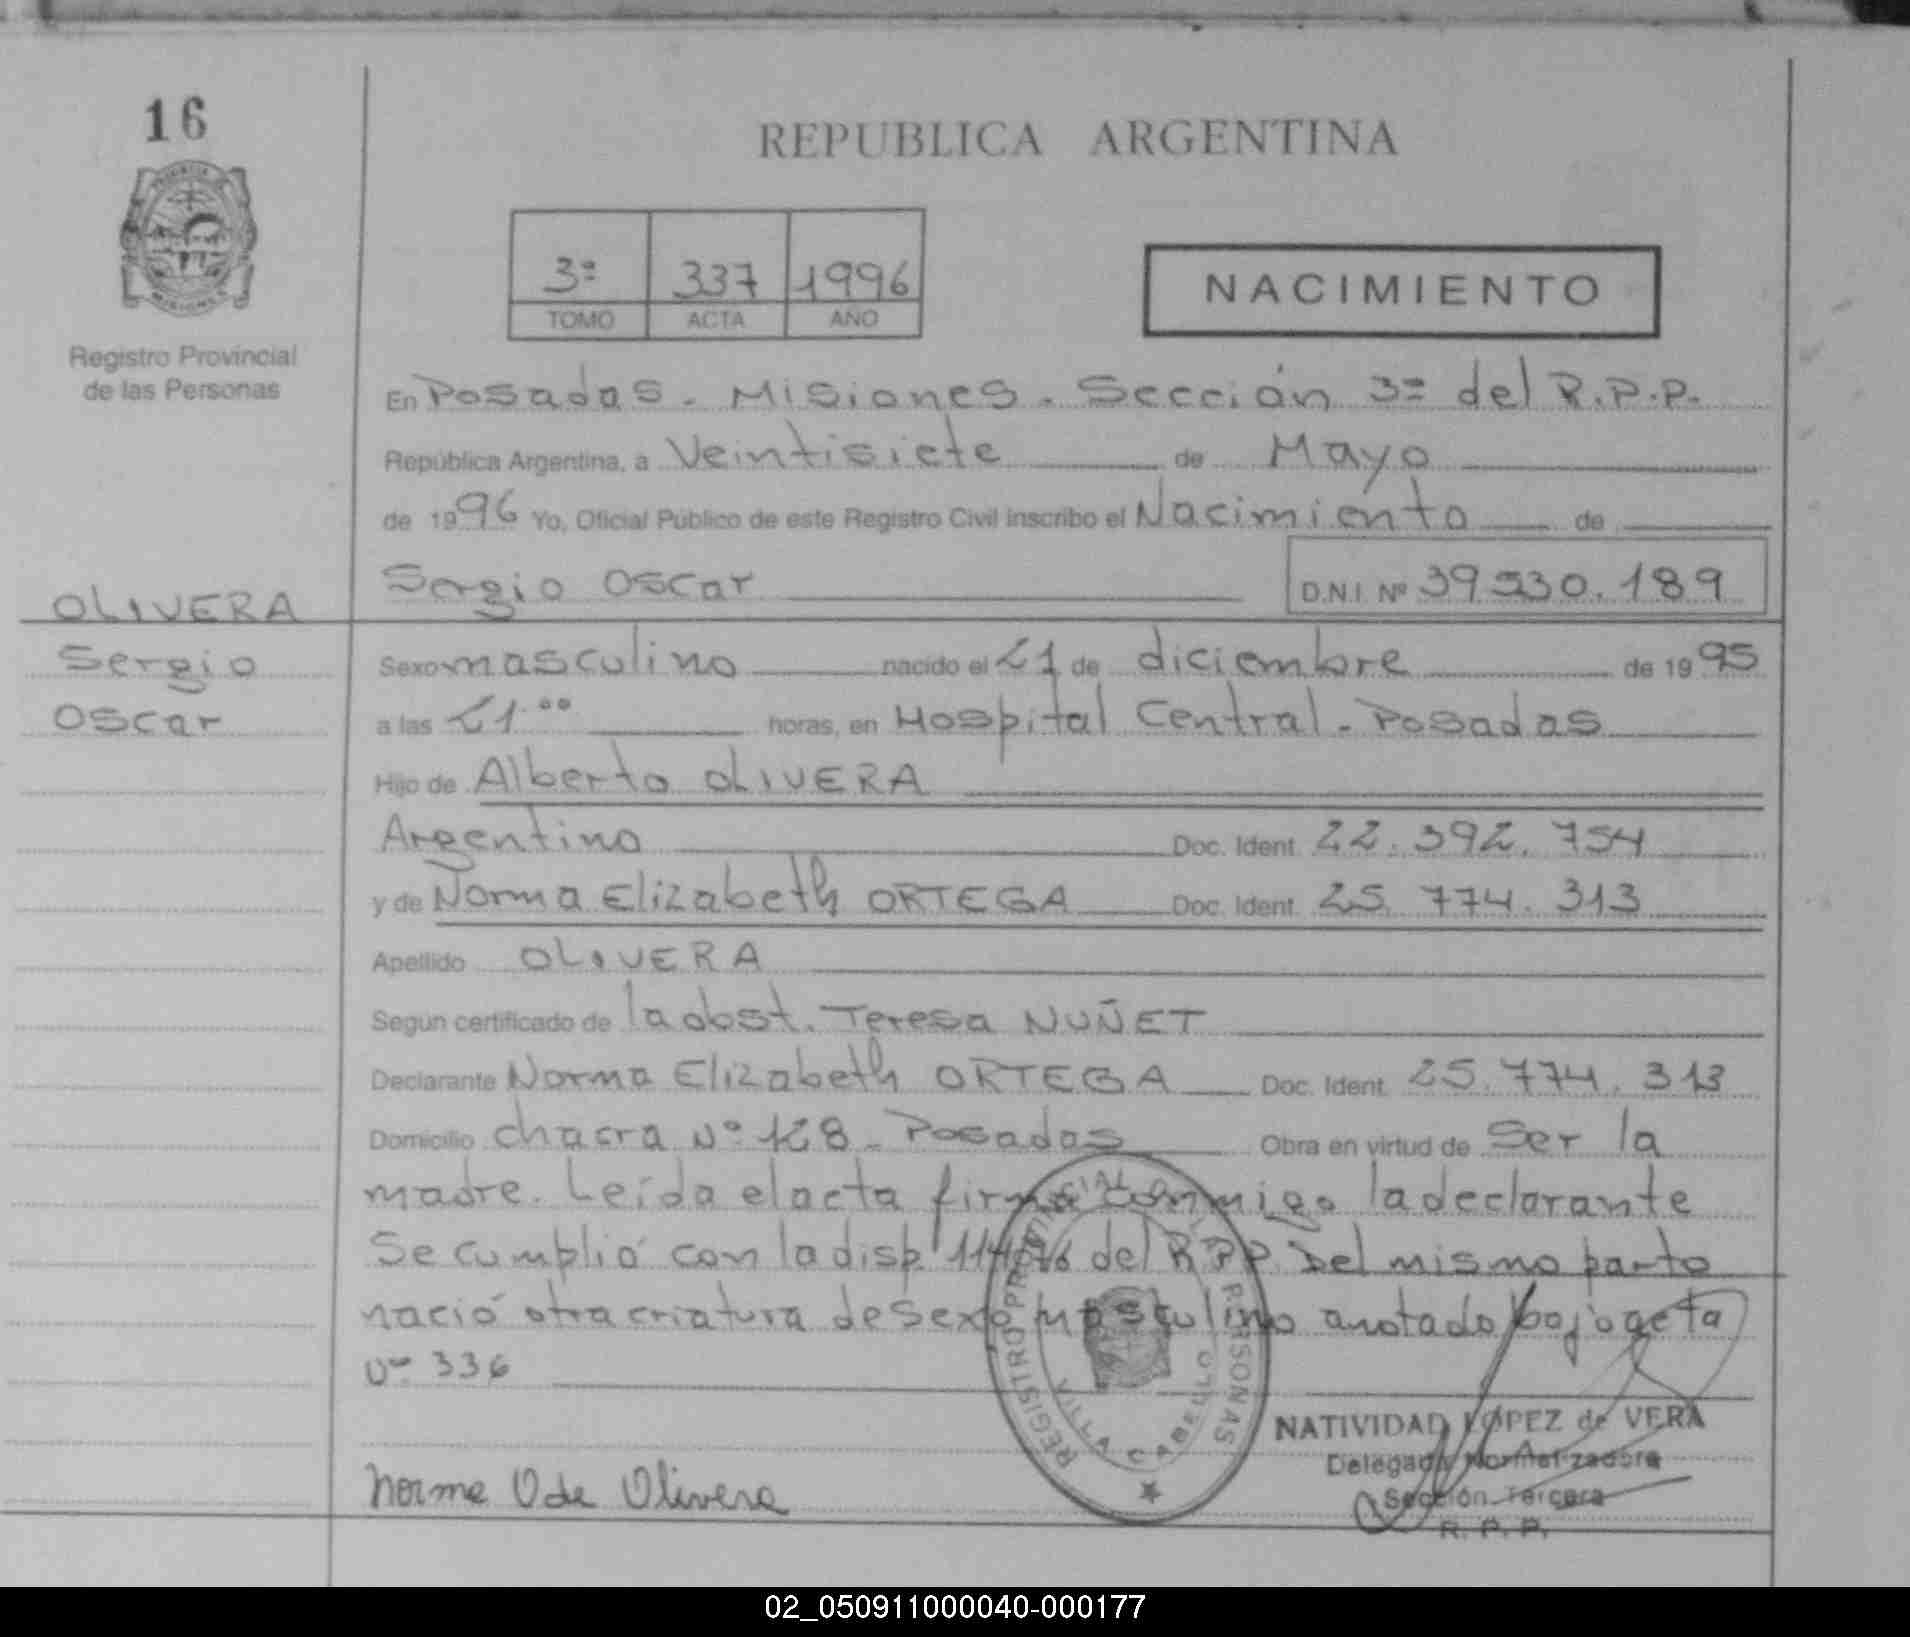 16
REPUBLICA ARGENTINA
3ª 337 1996
TOMO ACTA AÑO
NACIMIENTO
Registro Provincial
de las Personas
En Posadas - Misiones - Sección 3ª del R.P.P.
República Argentina, a Veintisiete de Mayo
de 1996 Yo, Oficial Público de este Registro Civil inscribo el Nacimiento de
OLIVERA Sergio Oscar D.N.I. Nº 39.530.189
Sergio Sexo masculino nacido el 21 de diciembre de 1995
Oscar a las 21.00 horas, en Hospital Central - Posadas
Hijo de Alberto OLIVERA
Argentino Doc. Ident. 22.392.754
y de Norma Elizabeth ORTEGA Doc. Ident. 25.774.313
Apellido OLIVERA
Según certificado de la obst. Teresa NUÑET
Declarante Norma Elizabeth ORTEGA Doc. Ident. 25.774.313
Domicilio chacra Nº 128 - Posadas Obra en virtud de Ser la
madre. Leída el acta firma conmigo la declarante
Se cumplió con la disp. del R.P.P. Del mismo parto
nació otra criatura de sexo masculino anotado bajo acta
Nº 336
REGISTRO PROVINCIAL DE LAS PERSONAS
VILLA CABELLO
NATIVIDAD LOPEZ de VERA
Delegada Normalizadora
Sección Tercera
R. P. P.
Norma O de Olivera
02_050911000040-000177